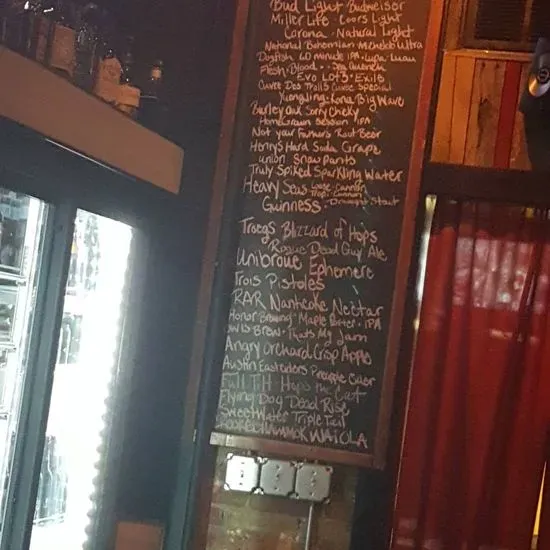 Bud Light Budweiser
Miller Lite · Coors Light
Corona · Natural Light
National Bohemian Michelob Ultra
Dogfish 60 minute IPA · Lupu Luau
Flesh · Blood · Sea Quench
Evo Lot3 · Exile
Cuvee Des Trolls Cuvee Special
Yuengling · Kona Big Wave
Burley Oak Sorry Cheky
HomeGrown Session IPA
Not your Fathers Root Beer
Henrys Hard Soda Grape
union Snow pants
Truly Spiked Sparkling Water
Heavy Seas Loose Cannon
Trop. Cannon
Guinness Draught Stout
Troegs Blizzard of Hops
Rogue Dead Guy Ale
Unibroue Ephemere
Trois Pistoles
RAR Nanticoke Nectar
Honor Brewing · Maple Porter · IPA
Brew · Thats My Jam
Angry Orchard Crisp Apple
Austin Eastciders Pineapple Cider
Full Tilt · Hops the Cat
Flying Dog Dead Rise
Sweetwater Triple Tail
WAIOLA